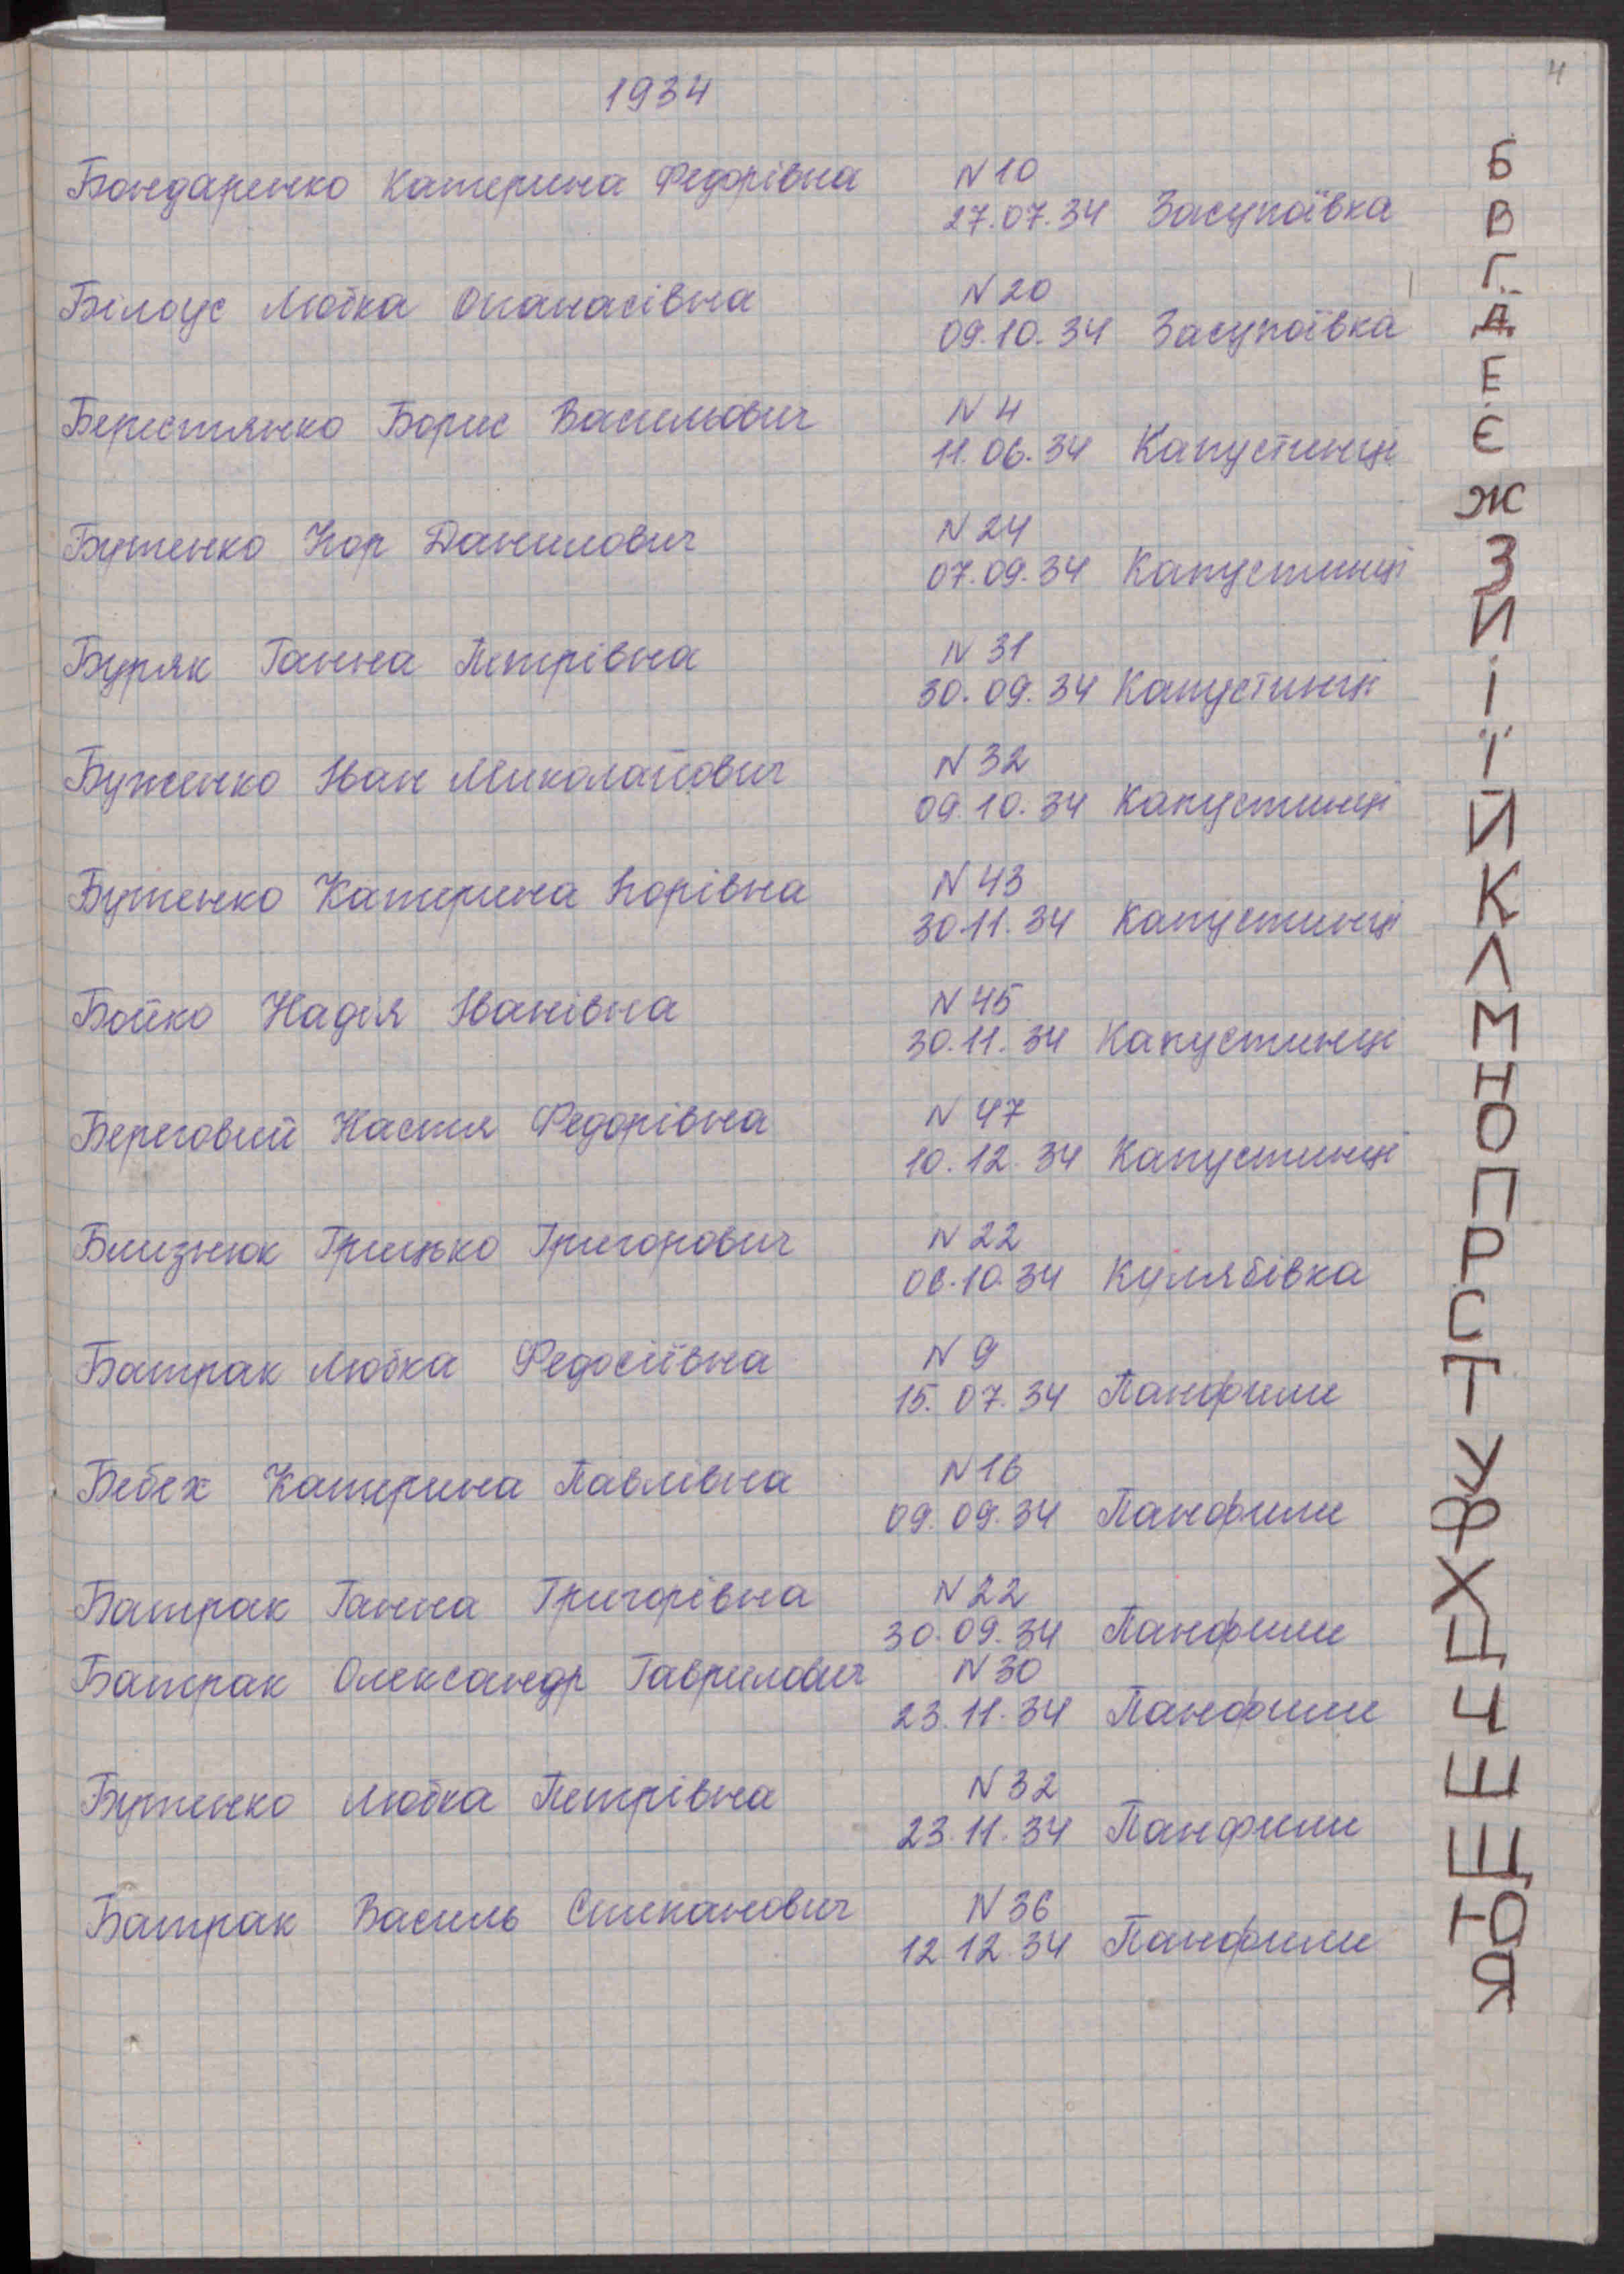 4
1934
Бондаренко Катерина Федорівна N 10
27.07.34 Засупоївка
Білоус Любка Опанасівна N 20
09.10.34 Засупоївка
Берестянко Борис Васильович N 4
11.06.34 Капустинці
Бутенко Ігор Данилович N 24
07.09.34 Капустинці
Буряк Ганна Петрівна N 31
30.09.34 Капустинці
Бутенко Іван Миколайович N 32
09.10.34 Капустинці
Бутенко Катерина Ігорівна N 43
30.11.34 Капустинці
Бойко Надія Іванівна N 45
30.11.34 Капустинці
Береговий Настя Федорівна N 47
10.12.34 Капустинці
Близнюк Грицько Григорович N 22
06.10.34 Кулябівка
Батрак Любка Федосіївна N 9
15.07.34 Панфили
Бебех Катерина Павлівна N 16
09.09.34 Панфили
Батрак Ганна Григорівна N 22
30.09.34 Панфили
Батрак Олександр Гаврилович N 30
23.11.34 Панфили
Бутенко Любка Петрівна N 32
23.11.34 Панфили
Батрак Василь Степанович N 36
12.12.34 Панфили
Б
В
Г
Д
Е
Є
Ж
З
И
І
Ї
Й
К
Л
М
Н
О
П
Р
С
Т
У
Ф
Х
Ц
Ч
Ш
Щ
Ю
Я